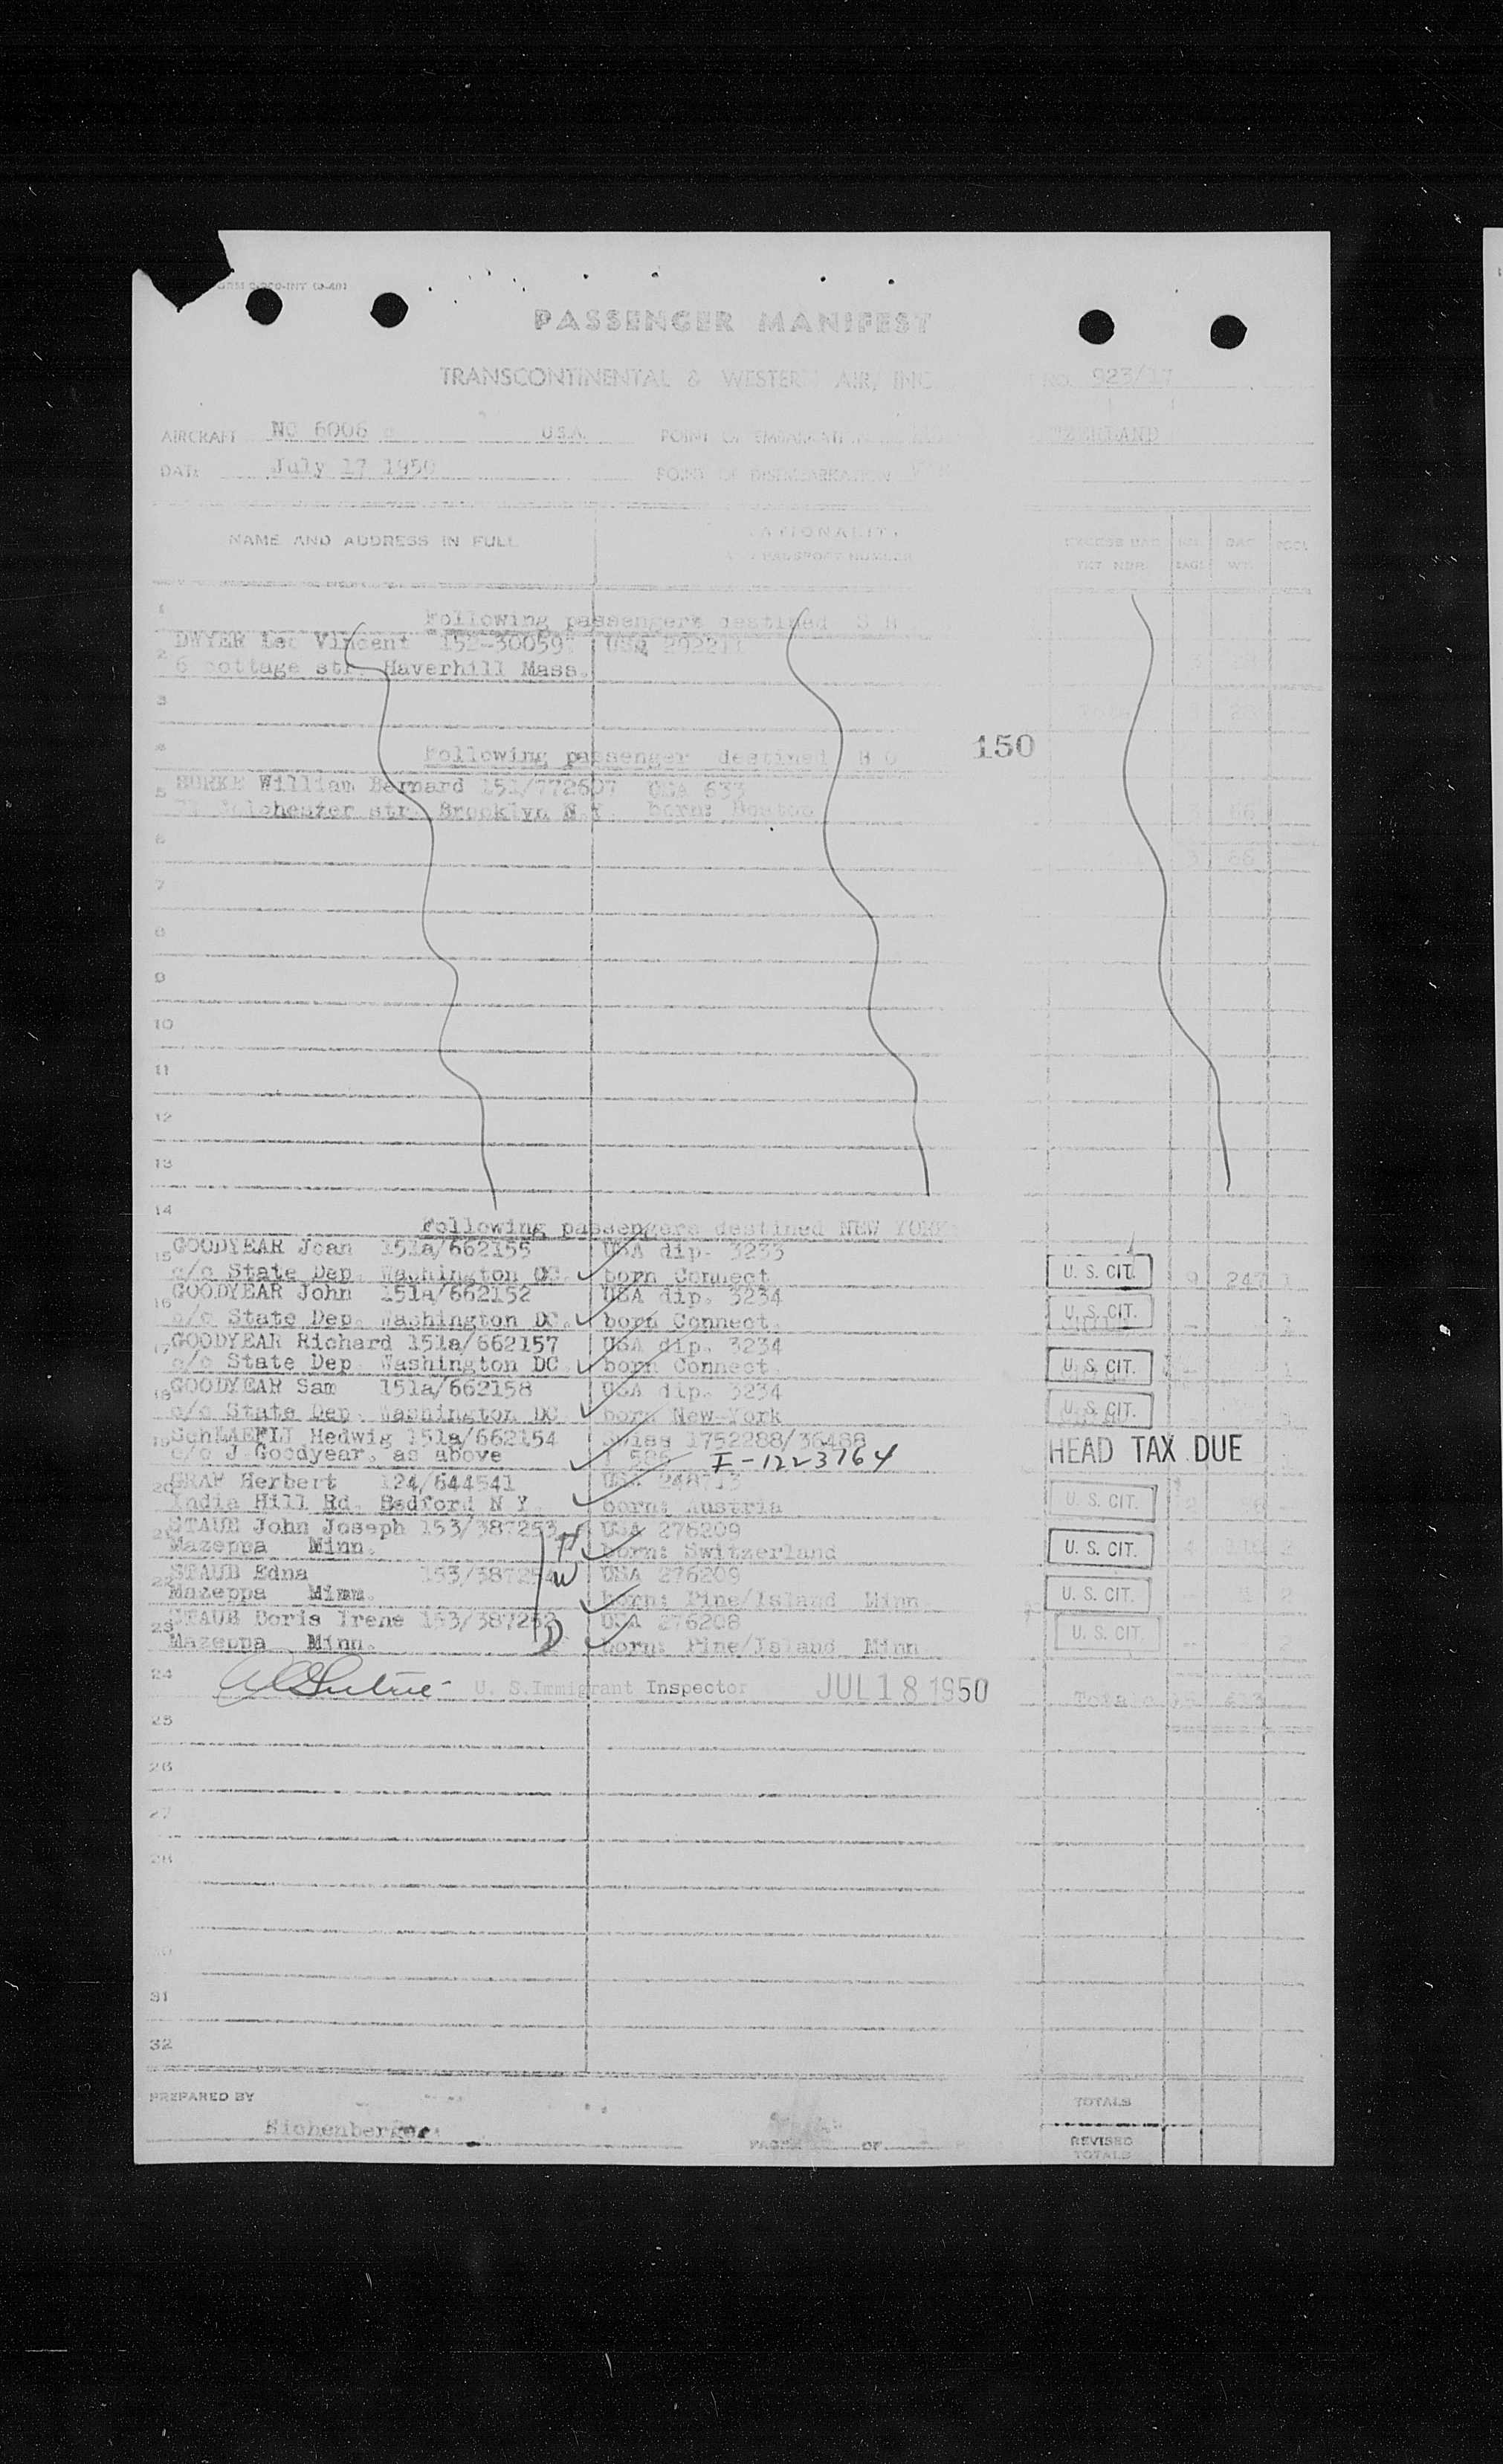 PASSENGER MANIFEST
TRANSCONTINENTAL & WESTERN AIR, INC. NO. 923/17
AIRCRAFT NC 6006 USA POINT OF EMBARKATION
DATE July 17 1950 POINT OF DISEMBARKATION
NAME AND ADDRESS IN FULL NATIONALITY EXCESS BAG BAG POOL
PASSPORT NUMBER TKT NBR BAGS WT
1 Following passengers destined
DWYER Leo Vincent 152-30059 USA
2 6 cottage str. Haverhill Mass.
3
4 Following passenger destined 150
5 BURKE William Bernard 151/772607 USA 633
str. Brooklyn N.Y. born: Boston 66
6 3 66
7
8
9
10
11
12
13
14 Following passengers destined NEW YORK
15 GOODYEAR Jean 151a/662155 USA dip. 3233
c/o State Dep. Washington DC. born Connect U. S. CIT. 9 247 1
16 GOODYEAR John 151a/662152 USA dip. 3234
c/o State Dep. Washington DC. born Connect. U. S. CIT.
17 GOODYEAR Richard 151a/662157 USA dip. 3234
c/o State Dep. Washington DC. born Connect. U. S. CIT. 1
18 GOODYEAR Sam 151a/662158 USA dip. 3234
c/o State Dep. Washington DC born New-York U. S. CIT.
19 SchLAEFLI Hedwig 151a/662154 Swiss 1752288/36488
c/o J Goodyear. as above I-1223764 HEAD TAX DUE
20 GRAF Herbert 124/644541 USA 248713
India Hill Rd. Bedford N Y. born: Austria U. S. CIT.
21 STAUB John Joseph 153/387253 H USA 276209
Mazeppa Minn. born: Switzerland U. S. CIT.
22 STAUB Edna 153/387254 W USA 276209
Mazeppa Minn. born: Pine/Island Minn U. S. CIT. 2
23 STAUB Doris Irene 153/387252 USA 276208
Mazeppa Minn. D born: Pine/Island Minn U. S. CIT. 2
24 U. S. Immigrant Inspector JUL 18 1950 Totals
25
26
27
28
31
32
PREPARED BY TOTALS
Eichenberger
PAGE OF REVISED
TOTALS